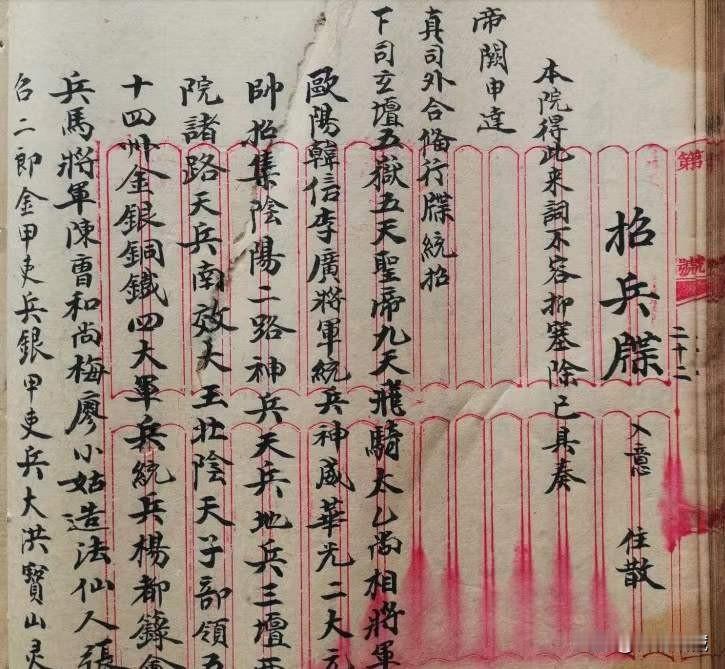 第 號
二十二
招兵牒 入意 住散
本院得此来詞不容抑塞除已具奏
帝闕申達
真司外合備行牒統招
下司玄壇五嶽五天聖帝九天飛騎太乙尚相將軍
歐陽韓信李廣將軍統兵神威華光二大元
帥招集陰陽二路神兵天兵地兵三壇
院諸路天兵南效大王壯陰天子部領五
十四州金銀銅鐵四大軍兵統兵楊都
兵馬將軍陳曹和尚梅廖小姑造法仙人張
召二郎金甲吏兵銀甲吏兵大洪寶山灵